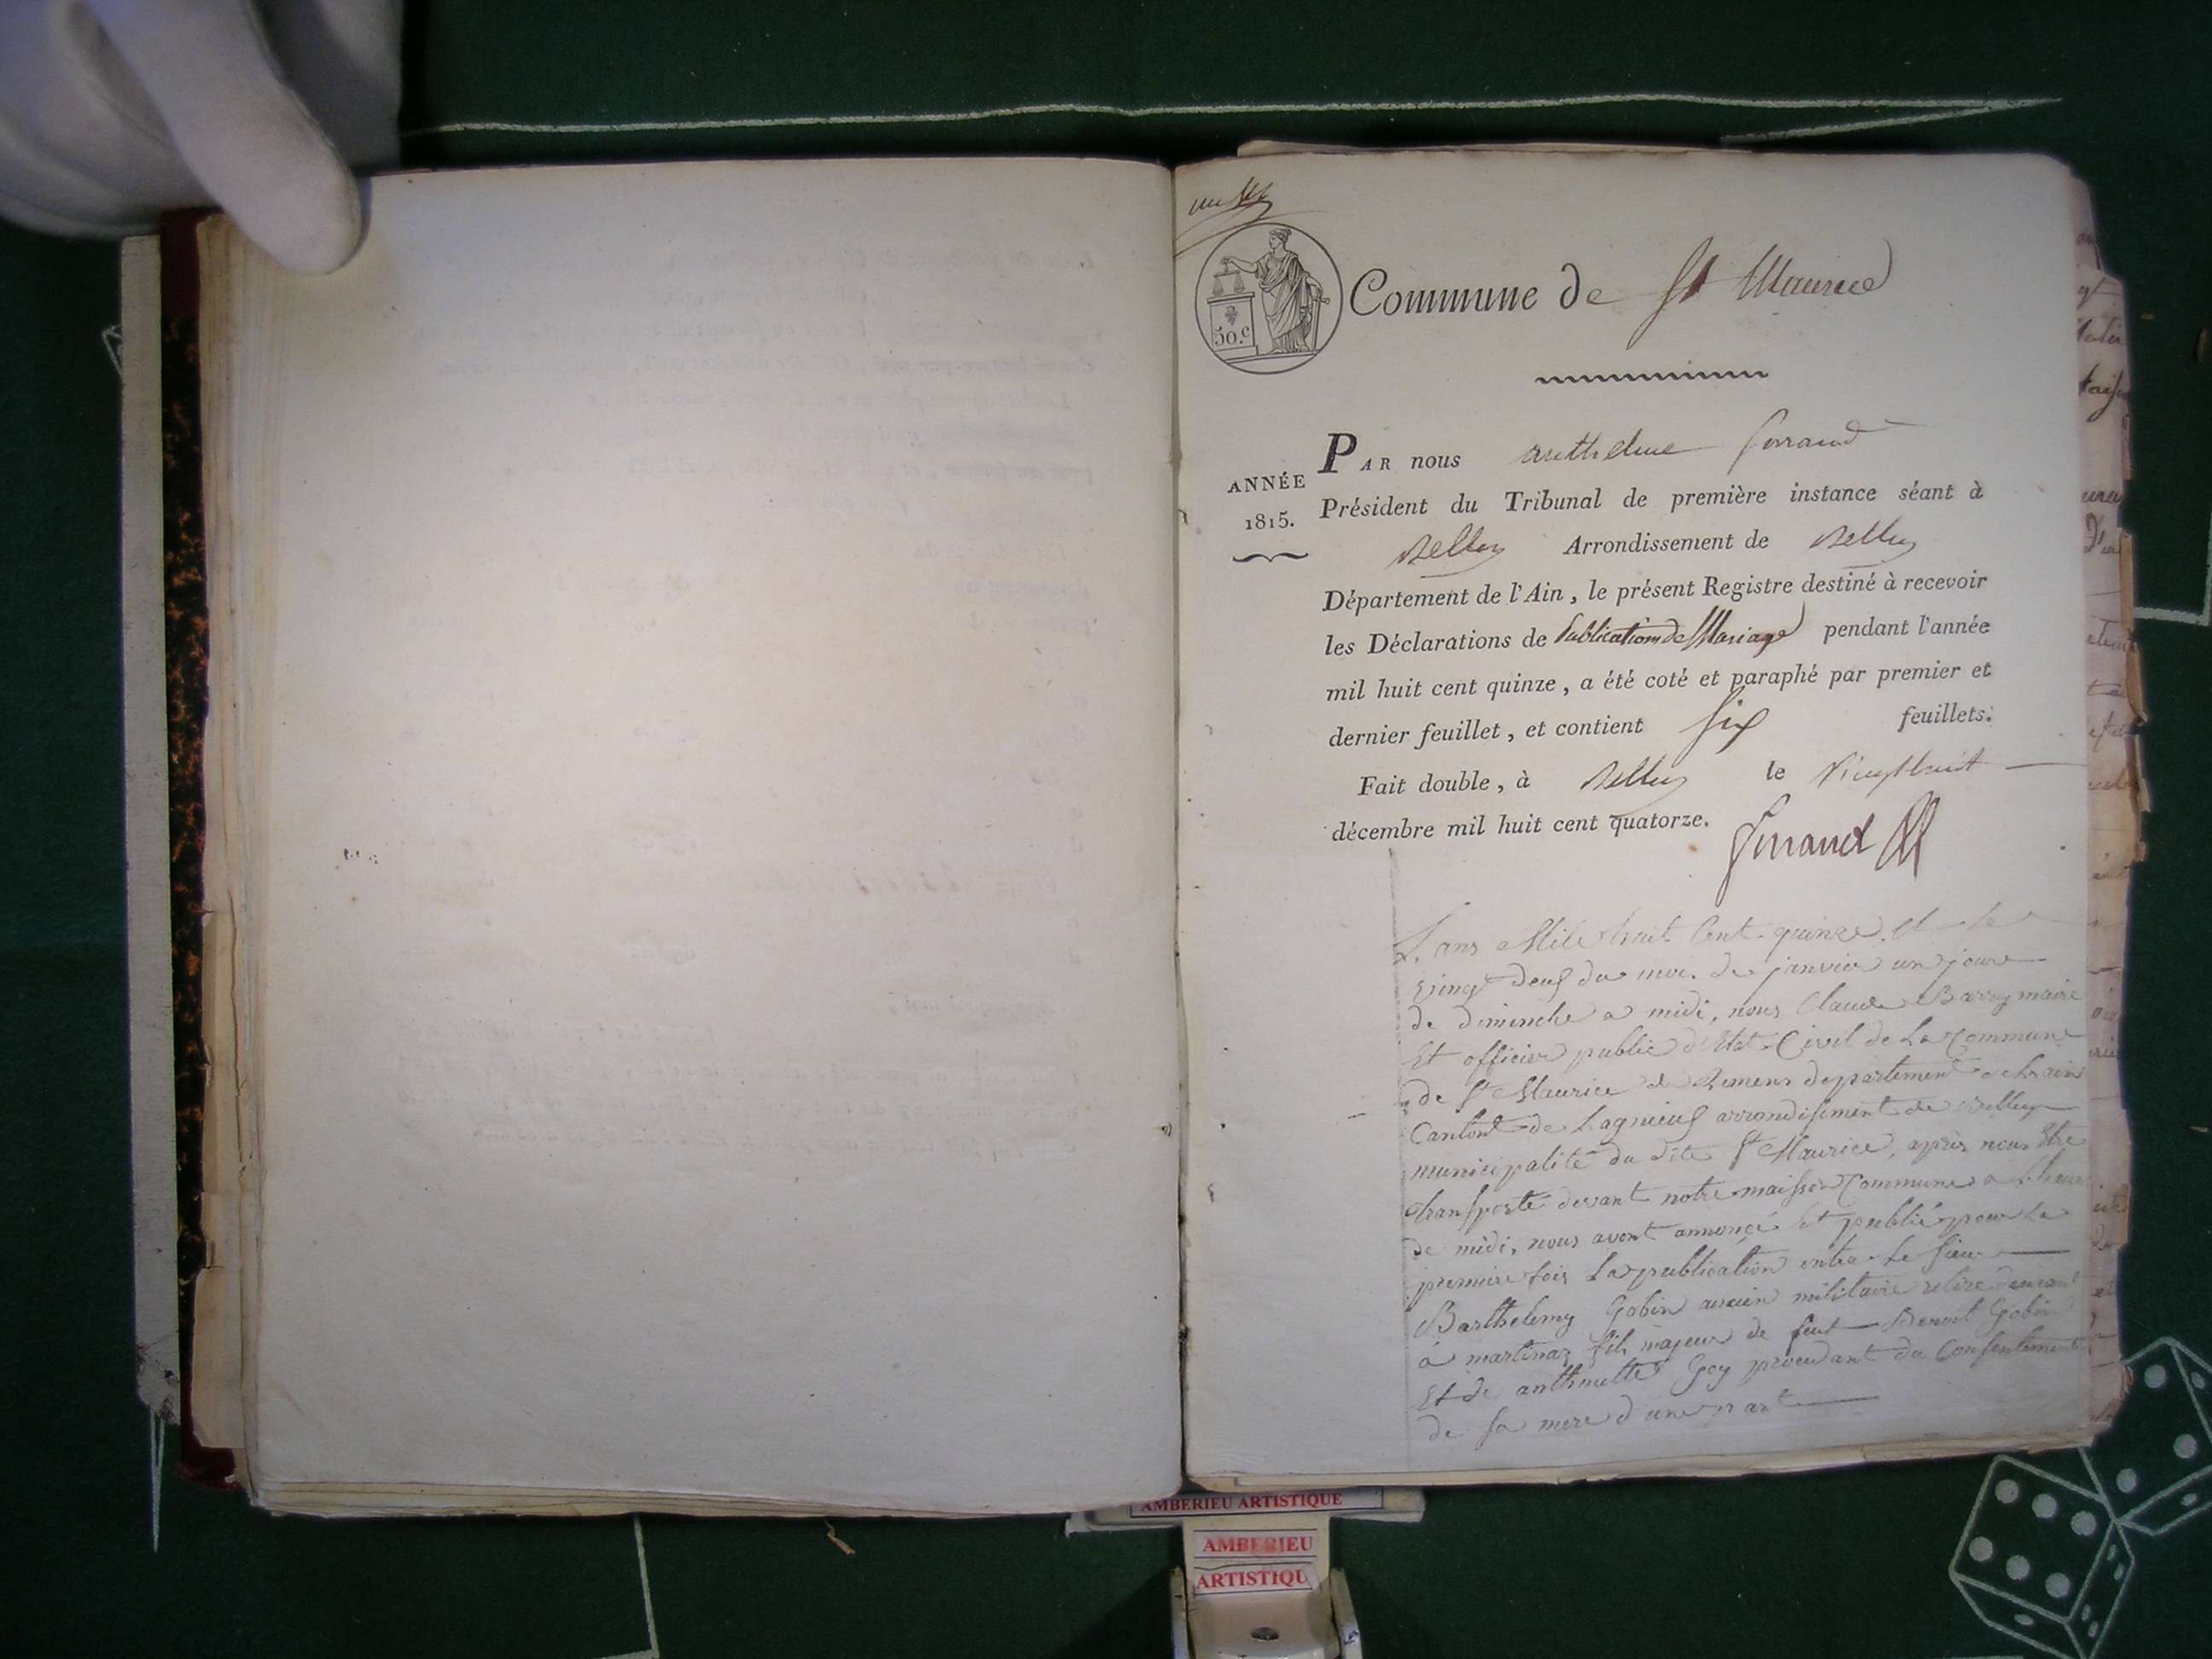 50.c
Commune de St Maurice
PAR nous Anthelme Ferrand
ANNÉE
1815.
Président du Tribunal de première instance séant à
Belley Arrondissement de Belley
Département de l'Ain, le présent Registre destiné à recevoir
les Déclarations de Publications de Mariage pendant l'année
mil huit cent quinze, a été coté et paraphé par premier et
dernier feuillet, et contient Six feuillets.
Fait double, à Belley le Vingt huit
décembre mil huit cent quatorze.
Ferrand
L'ans Mile huit Cent quinze, et le
vingt deuf du moi de janvier un jour
de diminche a midi, nous Claude Barry maire
Et officier public d'Etat Civil de La Commune
de St Maurice de Remens departement de Lain
Cantont de Lagnieuf arrondisiment de Belley
municipalité du dite St Maurice, après nous Etre
transporté devant notre maisson Commune a Lheur
de midi, nous avont annoncé et publié pour La
premiere fois La publication entre Le sieur
Barthelemy Gobin ancien militaire retire
à martinaz fils majeur de feut Benoit Gobin
Et de anthmette Goy procedant du Consentement
de sa mere d'une part
AMBERIEU ARTISTIQUE
AMBERIEU
ARTISTIQU